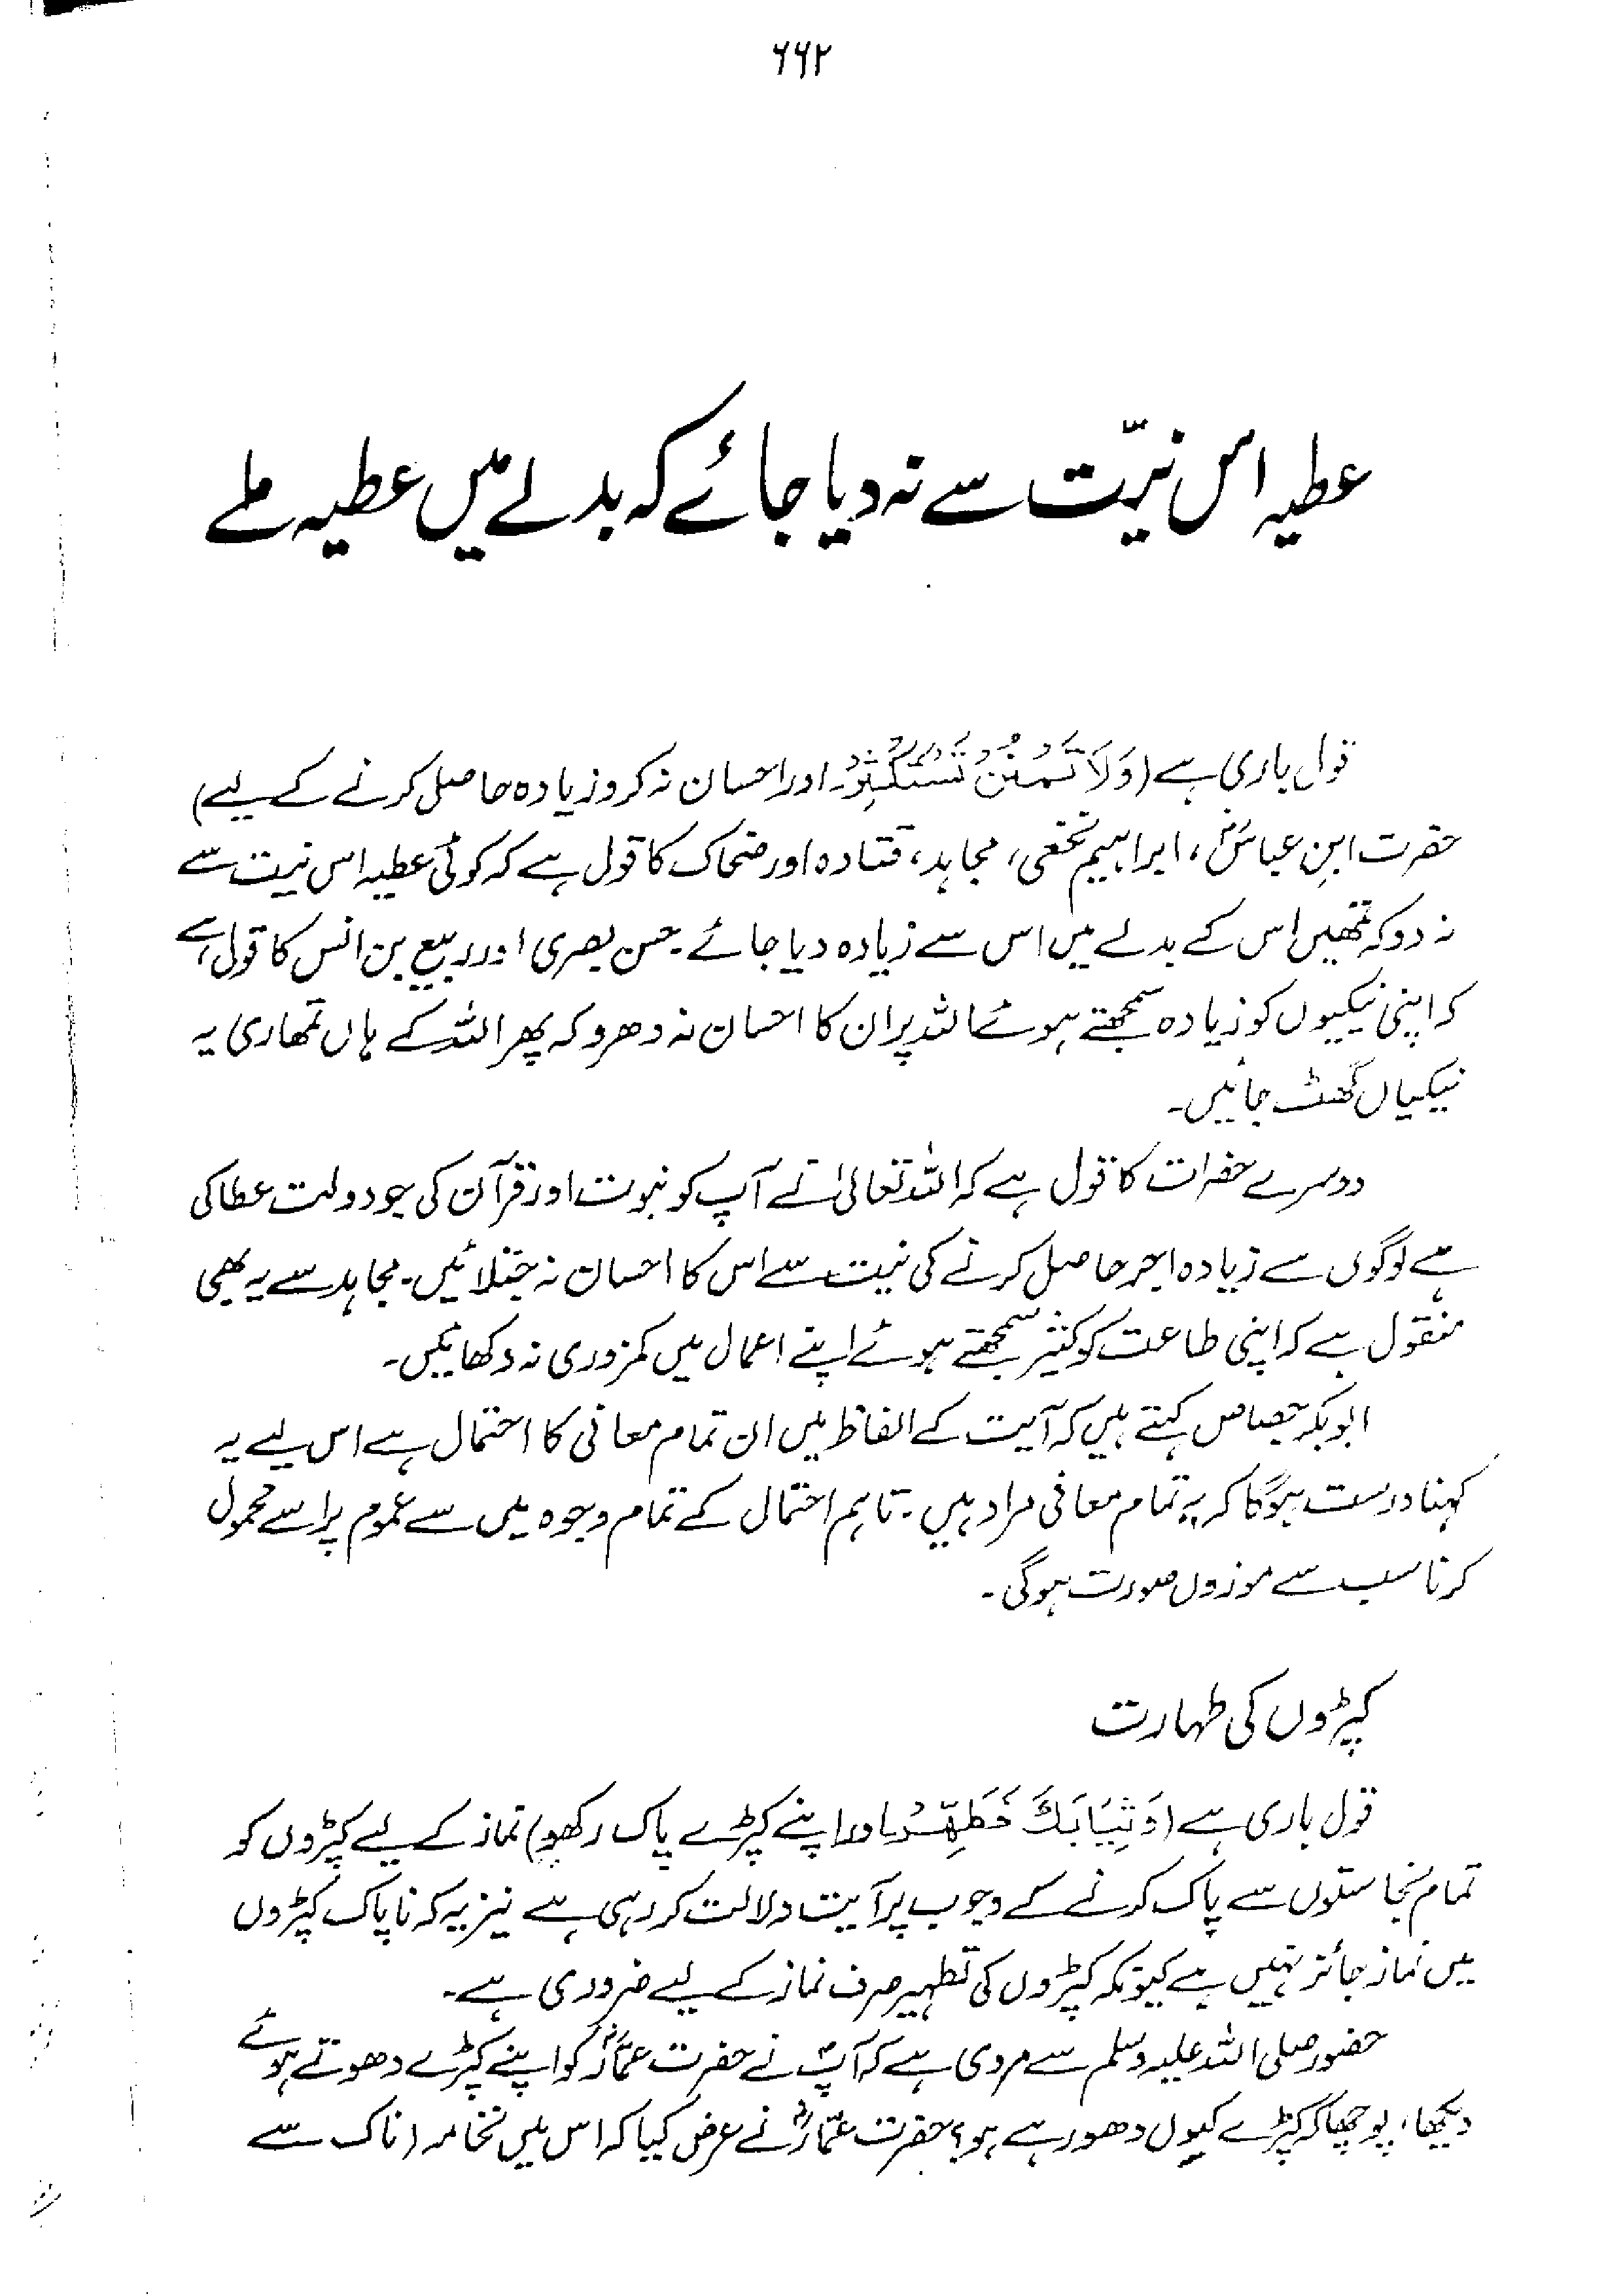 ۶۶۲
عطیہ اس نیّت سے نہ دیا جائے کہ بدلے میں عطیہ ملے
قول باری ہے (وَلَا تَمْنُنْ تَسْتَكْثِرُ۔ اور احسان نہ کرو زیادہ حاصل کرنے کے لیے)
حضرت ابن عباسؓ، ابراہیم نخعی، مجاہد، قتادہ اور ضحاک کا قول ہے کہ کوئی عطیہ اس نیت سے
نہ دو کہ تمھیں اس کے بدلے میں اس سے زیادہ دیا جائے۔ حسن بصری اور ربیع بن انس کا قول ہے
کہ اپنی نیکیوں کو زیادہ سمجھتے ہوئے اللہ پر ان کا احسان نہ دھرو کہ پھر اللہ کے ہاں تمھاری یہ
نیکیاں گھٹ جائیں۔
دوسرے حضرات کا قول ہے کہ اللہ تعالیٰ نے آپ کو نبوت اور قرآن کی جو دولت عطا کی
ہے لوگوں سے زیادہ اجر حاصل کرنے کی نیت سے اس کا احسان نہ جتلائیں۔ مجاہد سے یہ بھی
منقول ہے کہ اپنی طاعت کو کثیر سمجھتے ہوئے اپنے اعمال میں کمزوری نہ دکھائیں۔
ابوبکر جصاص کہتے ہیں کہ آیت کے الفاظ میں ان تمام معانی کا احتمال ہے اس لیے یہ
کہنا درست ہوگا کہ یہ تمام معانی مراد ہیں۔ تاہم احتمال کے تمام وجوہ میں سے عموم پر اسے محمول
کرنا سب سے موزوں صورت ہوگی۔
کپڑوں کی طہارت
قول باری ہے (وَثِيَابَكَ فَطَهِّرْ۔ اور اپنے کپڑے پاک رکھو) نماز کے لیے کپڑوں کو
تمام نجاستوں سے پاک کرنے کے وجوب پر آیت دلالت کر رہی ہے نیز یہ کہ ناپاک کپڑوں
میں نماز جائز نہیں ہے کیونکہ کپڑوں کی تطہیر صرف نماز کے لیے ضروری ہے۔
حضور صلی اللہ علیہ وسلم سے مروی ہے کہ آپؐ نے حضرت عمّارؓ کو اپنے کپڑے دھوتے ہوئے
دیکھا، پوچھا کہ کپڑے کیوں دھو رہے ہو؟ حضرت عمّارؓ نے عرض کیا کہ اس میں نخامہ (ناک سے